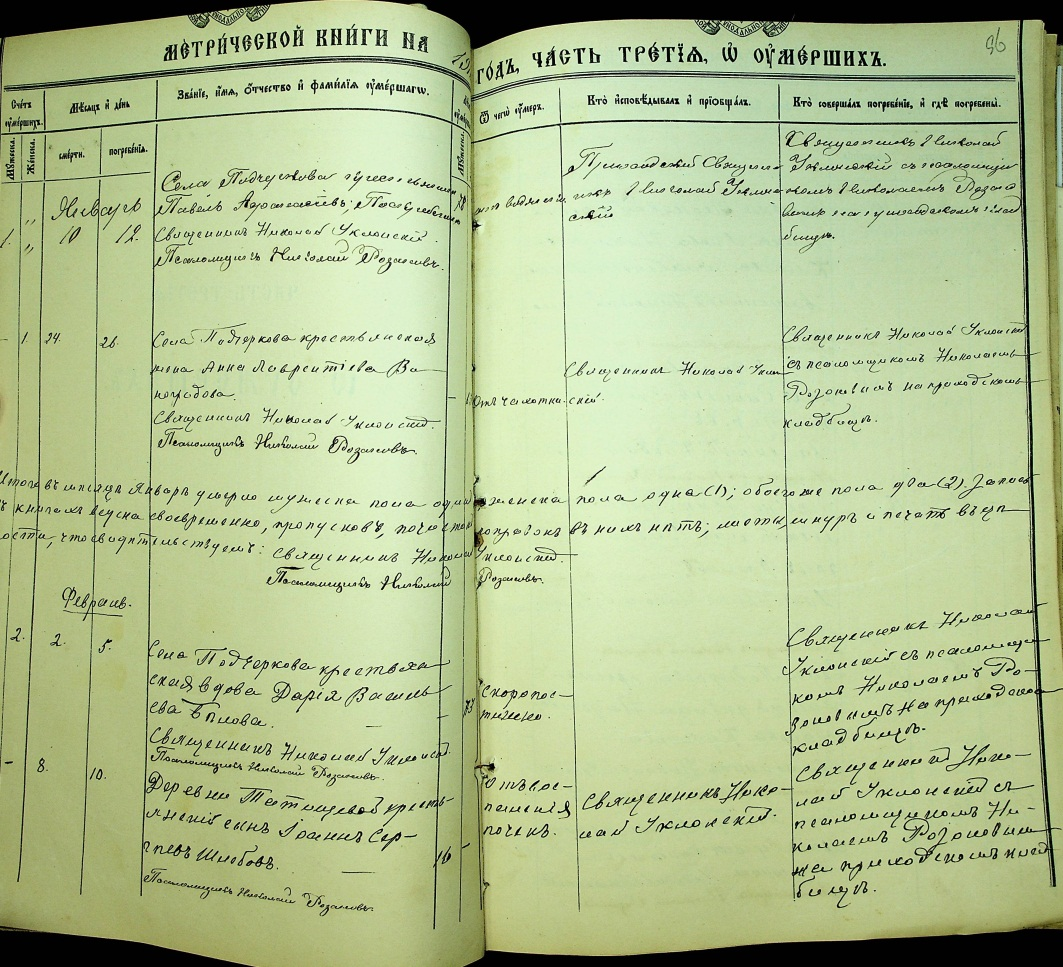 МЕТРИ́ЧЕСКОЙ КНИ́ГИ НА
ГОДЪ, ЧА́СТЬ ТРЕ́ТІѦ, Ѡ ОУМЕ́РШИХЪ.
96
Счетъ оуме́ршихъ.
Мꙋжеска.
Женска.
Мѣсѧцъ и день
смерти.
погребенїѧ.
Зва́нїе, и́мѧ, о́тчество и҆ фами́лїѧ оуме́ршагѡ.
Ѿ чегѡ̀ оу́меръ.
Кто̀ и҆сповѣ́дывалъ и҆ прїѡбща́лъ.
Кто̀ соверша́лъ погребе́нїе, и҆ гдѣ̀ погребены̀.
Января
1. „ 10 12.
Села Подчеркова крестьянинъ
Павелъ Афанасіевъ
Священникъ Николай Уклонскій.
Псаломщикъ Николай Розановъ.
78
отъ водянки
Приходскій Священ-
никъ Николай Уклон-
скій
Священникъ Николай
Уклонскій съ псаломщи-
комъ Николаемъ Розано-
вымъ на приходскомъ клад-
бищѣ.
- 1. 24. 26.
Села Подчеркова крестьянская
жена Анна Лаврентіева Ви-
ноградова.
Священникъ Николай Уклонскій
Псаломщикъ Николай Розановъ.
Отъ чахотки.
Священникъ Николай Уклон-
скій.
Священникъ Николай Уклонскій
съ псаломщикомъ Николаемъ
Розановымъ на приходскомъ
кладбищѣ.
Итого въ мѣсяцѣ Январѣ умерло мужеска пола одинъ женска пола одна (1); обоего же пола два (2). Запись
въ книгахъ ведена своевременно, пропусковъ, почистокъ поправокъ въ нихъ нѣтъ; листы шнуръ и печать въ цѣ-
лости, что свидѣтельствуемъ: Священникъ Николай Уклонскій
Псаломщикъ Николай Розановъ.
Февраль.
2. 2. 5.
Села Подчеркова крестьян-
ская вдова Дарія Василь-
ева Бѣлова.
Священникъ Николай Уклонскій.
Псаломщикъ Николай Розановъ.
- 73
Скоропос-
тижно.
Священникъ Николай
Уклонскій съ псаломщи-
комъ Николаемъ Ро-
зановымъ на приходскомъ
кладбищѣ.
- 8. 10.
Деревни Татищевой кресть-
янскій сынъ Іоаннъ Сер-
гѣевъ
Псаломщикъ Николай Розановъ.
16 -
Отъ вос-
паленія
почекъ.
Священникъ Нико-
лай Уклонскій.
Священникъ Нико-
лай Уклонскій съ
псаломщикомъ Ни-
колаемъ Розановымъ
на приходскомъ клад-
бищѣ.